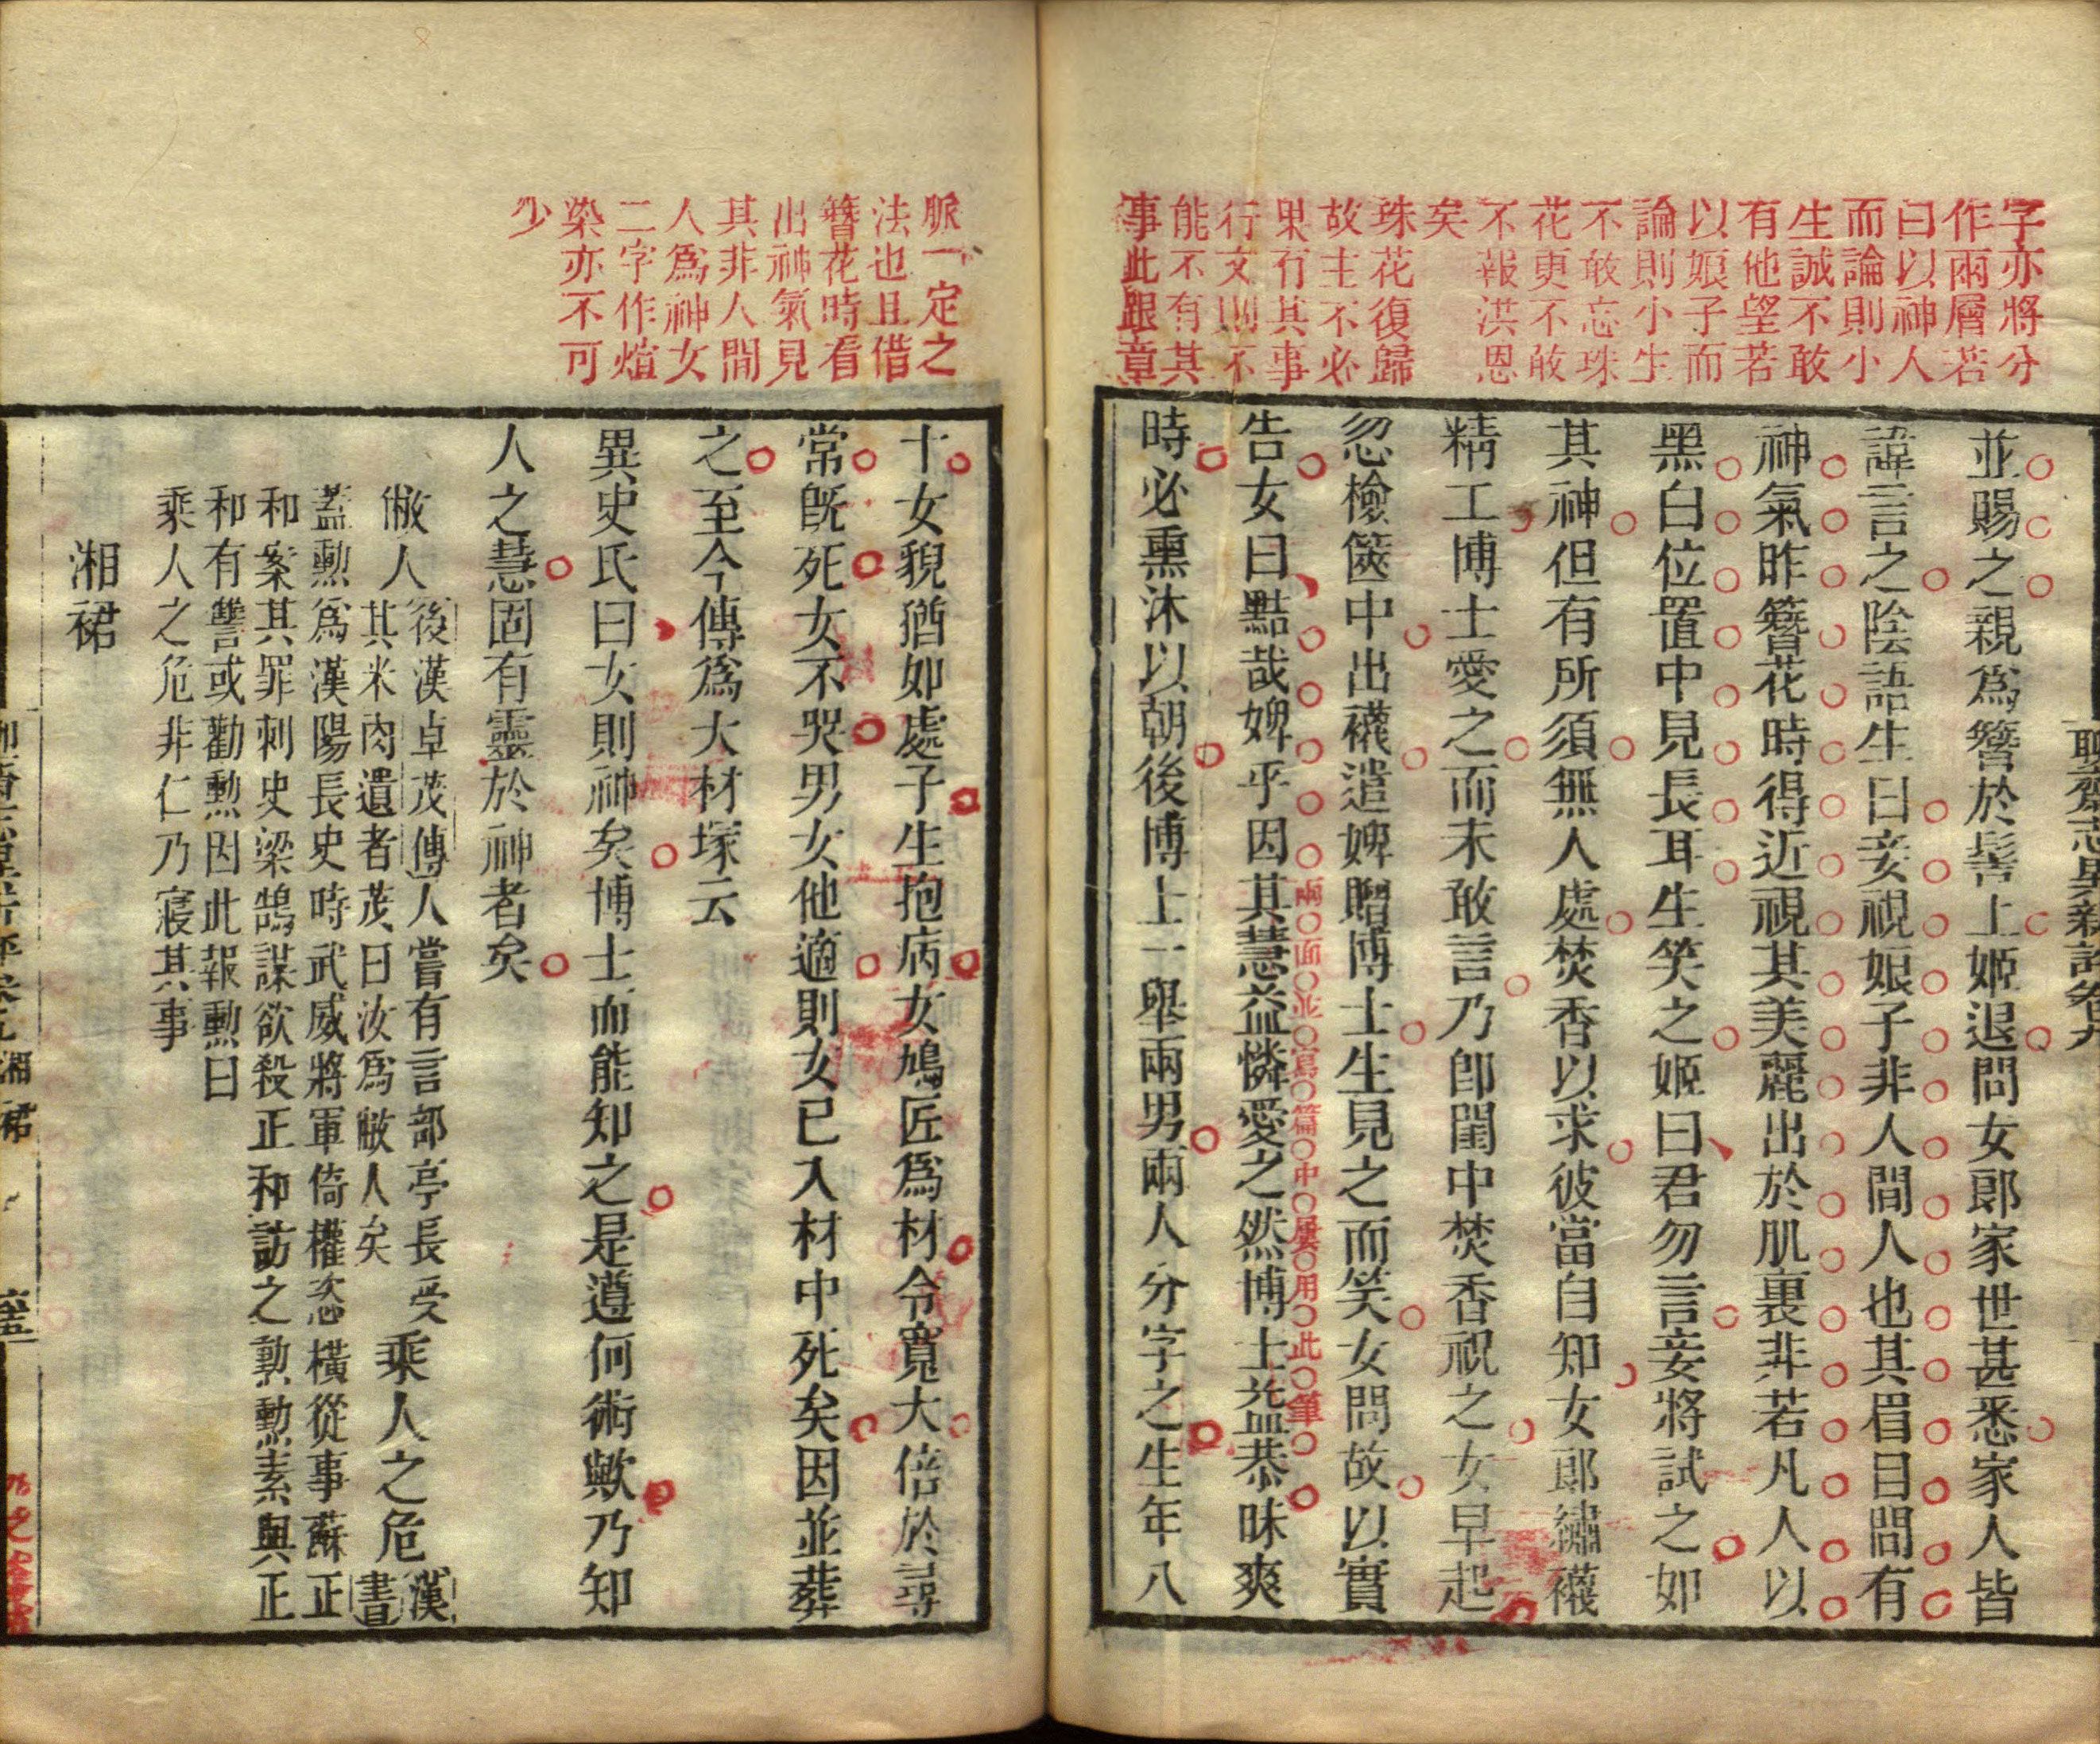 字亦將分
作兩層若
曰以神人
而論則小
生誠不敢
有他望若
以娘子而
論則小生
不敢忘珠
花更不敢
不報洪恩
矣
珠花復歸
故主不必
果有其事
行文則不
能不有其
事此跟章
並賜之親爲簪於髻上姬退問女郎家世甚悉家人皆
諱言之陰語生曰妾視娘子非人間人也其眉目間有
神氣昨簪花時得近視其美麗出於肌裏非若凡人以
黑白位置中見長耳生笑之姬曰君勿言妾將試之如
其神但有所須無人處焚香以求彼當自知女郎繡襪
精工博士愛之而未敢言乃卽閨中焚香祝之女早起
忽檢篋中出襪遣婢贈博士生見之而笑女問故以實
告女曰黠哉婢乎因其慧益憐愛之然博士益恭昧爽
兩面並寫篇中屢用此筆
時必熏沐以朝後博士一舉兩男兩人分字之生年八
聊齋志異新評卷九
脈一定之
法也且借
簪花時看
出神氣見
其非人間
人爲神女
二字作煊
染亦不可
少
十女貌猶如處子生抱病女鳩匠爲材令寬大倍於尋
常旣死女不哭男女他適則女已入材中死矣因並葬
之至今傳爲大材塚云
異史氏曰女則神矣博士而能知之是遵何術歟乃知
人之慧固有靈於神者矣
敝人
後漢卓茂傳人嘗有言部亭長受
其米肉遺者茂曰汝爲敝人矣
乘人之危
漢
書
蓋勲爲漢陽長史時武威將軍倚權恣橫從事蘇正
和案其罪刺史梁鵠謀欲殺正和訪之勲勲素與正
和有讐或勸勲因此報勲曰
乘人之危非仁乃寢其事
湘裙
湘裙